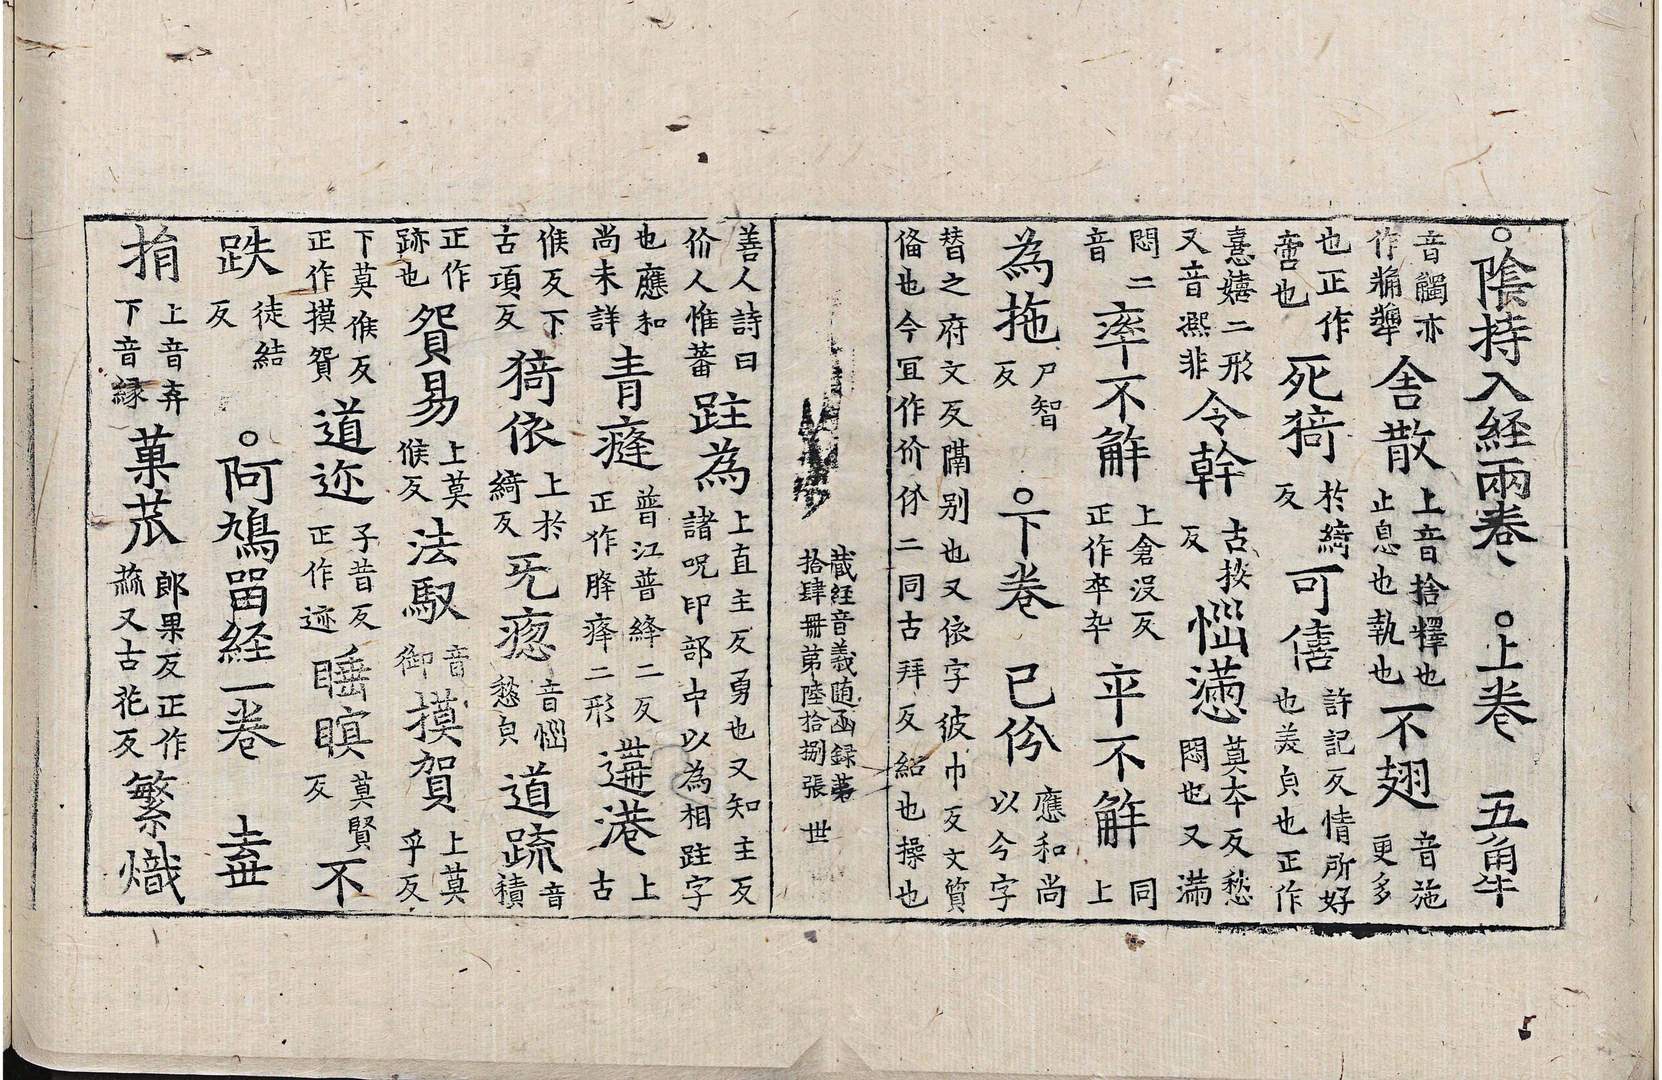 ○陰持入経兩卷 ○上卷 五角牛
音觸亦作觕犨 舍散 上音捨釋也止息也執也 不翅 音施更多
也正作啻也 死猗 於綺反 可僖 許記反情所好也美皃也正作
憙嬉二形又音熈非 令幹 古按反 惱懣 莫夲反愁悶也又滿
悶二音 率不解 上倉没反正作卒卆 卒不解 同上
為拖 尸智反 ○下卷 已 應和尚以今字
替之府文反隔别也又依字彼巾反文質俻也今冝作价价 二同古拜反紹也操也
藏経音義随函録第拾肆冊第陸拾捌張 世
善人詩曰价人惟蕃 跓為 上直主反勇也又知主反諸呪印部中以為相跓字
也應和尚未詳 青 普江普絳二反正作胮 二形 港 上古
侯反下古項反 猗依 上於綺反 旡 音惱愁皃 道疏 音積
正作跡也 貿易 上莫侯反 法馭 音御 摸賀 上莫乎反
下莫侯反正作摸貿 道迹 子昔反正作迹 睡瞑 莫賢反 不
跌 徒結反 ○阿鳩留経一卷
捐 上音弃下音縁 菓苽 郎果反正作蓏又古花反 繁熾